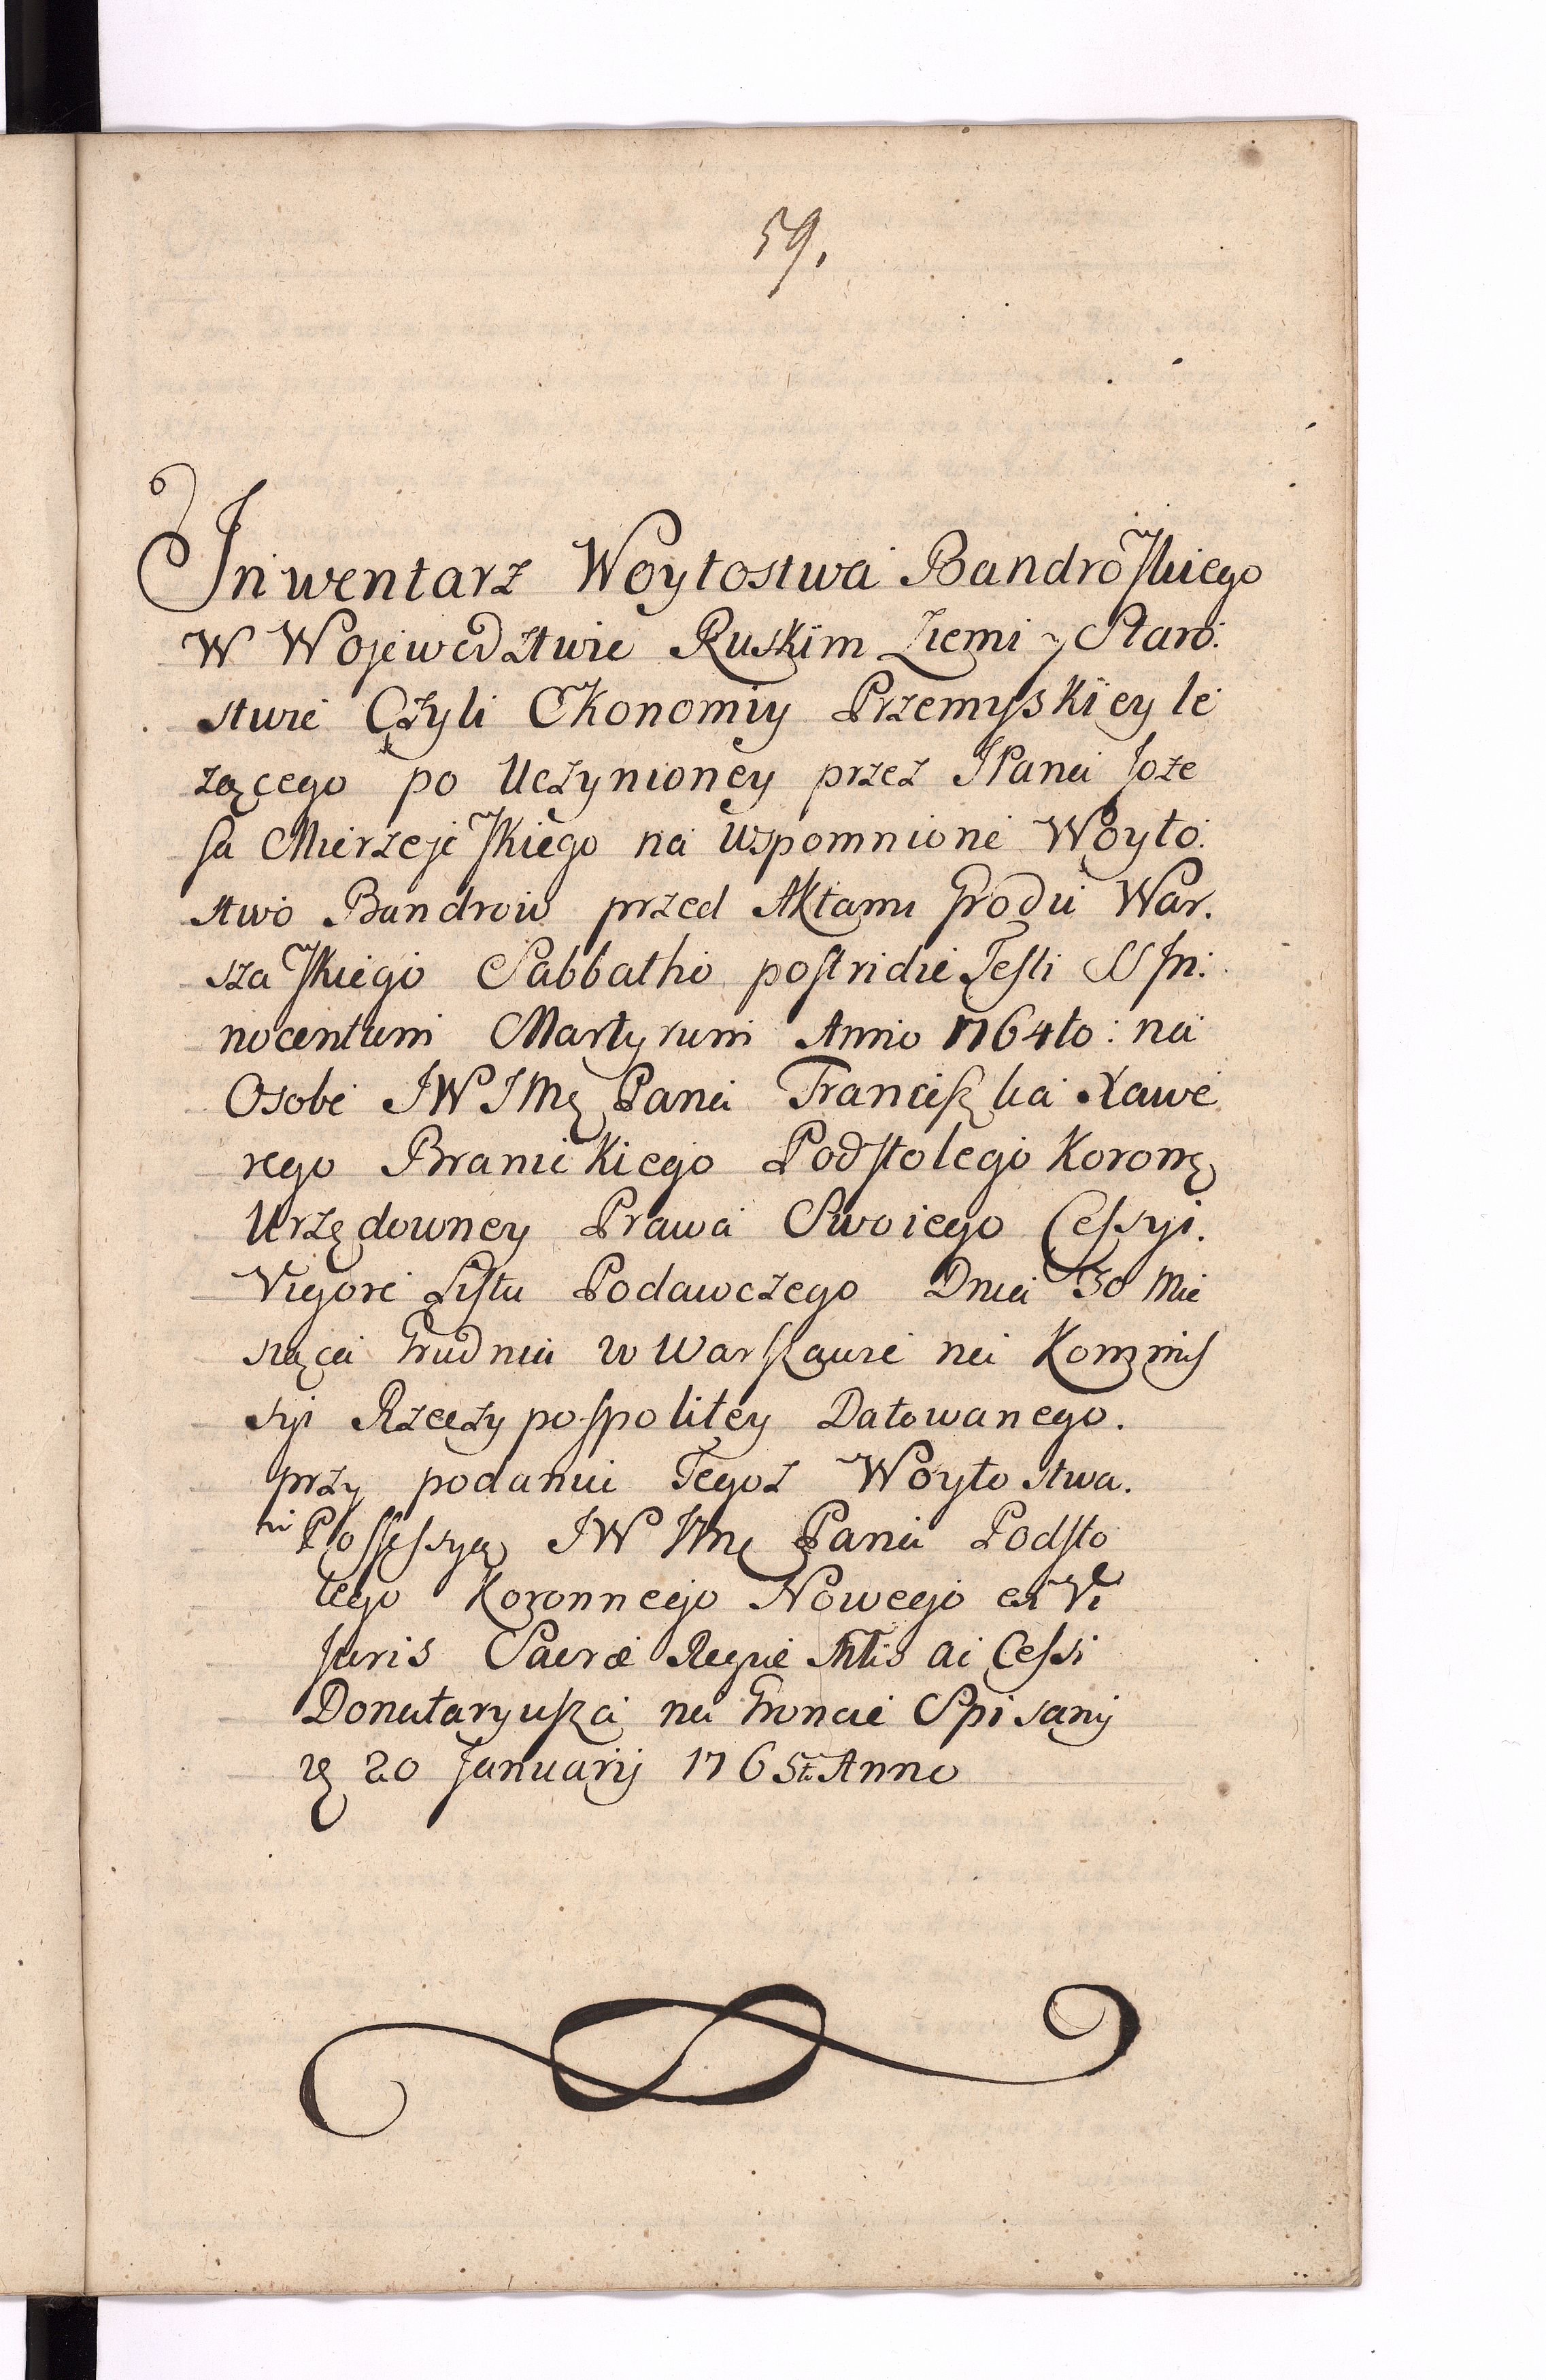 59.
Inwentarz Woytostwa Bandrowskiego
W Wojewodztwie Ruskim Ziemi y Staro:
stwie Czyli Ekonomiy Przemyskiey le
zącego po Uczynioney przez JPana Joze
fa Mierzejewskiego na Wspomnione Woyto:
stwo Bandrow przed Aktami Grodu War.
szawskiego Sabbatho postridie Festi SS Jn:
nocentum Martyrum Anno 1764to: na
Osobe JW JMę Pana Franciszka Xawe
rego Branickiego Podstolego Koronę
Urzędowney Prawa Swoiego Cessyi.
Vigore Listu Podawczego Dnia 30 Mie
siąca Grudnia w Warszawie na Kommis
syi Rzeczypospolitey Datowanego.
przy podaniu Tegoz Woytostwa.
in Possessyą JW JMę Pana Podsto
lego Koronnego Nowego ex Vi
Juris Sacræ Regiæ Mtis ac Cessi
Donataryusza na Groncie Spisany
20 Januarij 1765to Anno